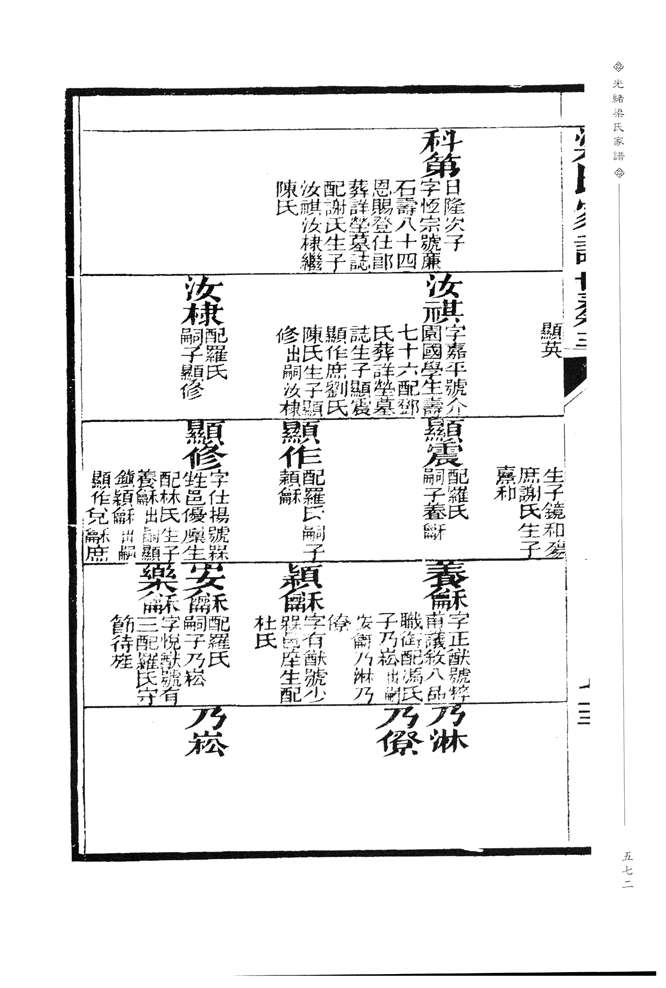 光緒梁氏家譜
梁氏家譜
科第
日隆次子
字恆宗號廉
石壽八十四
恩賜登仕郎
葬詳塋墓誌
配謝氏生子
汝祺汝棣繼
陳氏
顯英
汝祺
字嘉平號介
園國學生壽
七十六配鄧
氏葬詳塋墓
誌生子顯震
顯作庶劉氏
陳氏生子顯
修出嗣汝棣
汝棣
配羅氏
嗣子顯修
生子鏡和
庶謝氏生子
熹和
顯震
配羅氏
嗣子養龢
顯作
配羅氏嗣子
穎龢
顯修
字仕揚號槑
生邑優廩生
配林氏生子
養龢出嗣顯
穎龢出嗣
顯作安龢庶
養龢
字正猷號粹
甫議敘八品
職銜配馮氏
子乃崧出嗣
安龢乃淋乃
僚
穎龢
字有猷號少
槑邑庠生配
杜氏
安龢
配羅氏
嗣子乃崧
樂龢
字悅猷號有
三配羅氏守
節待旌
乃淋
乃僚
乃崧
五七二